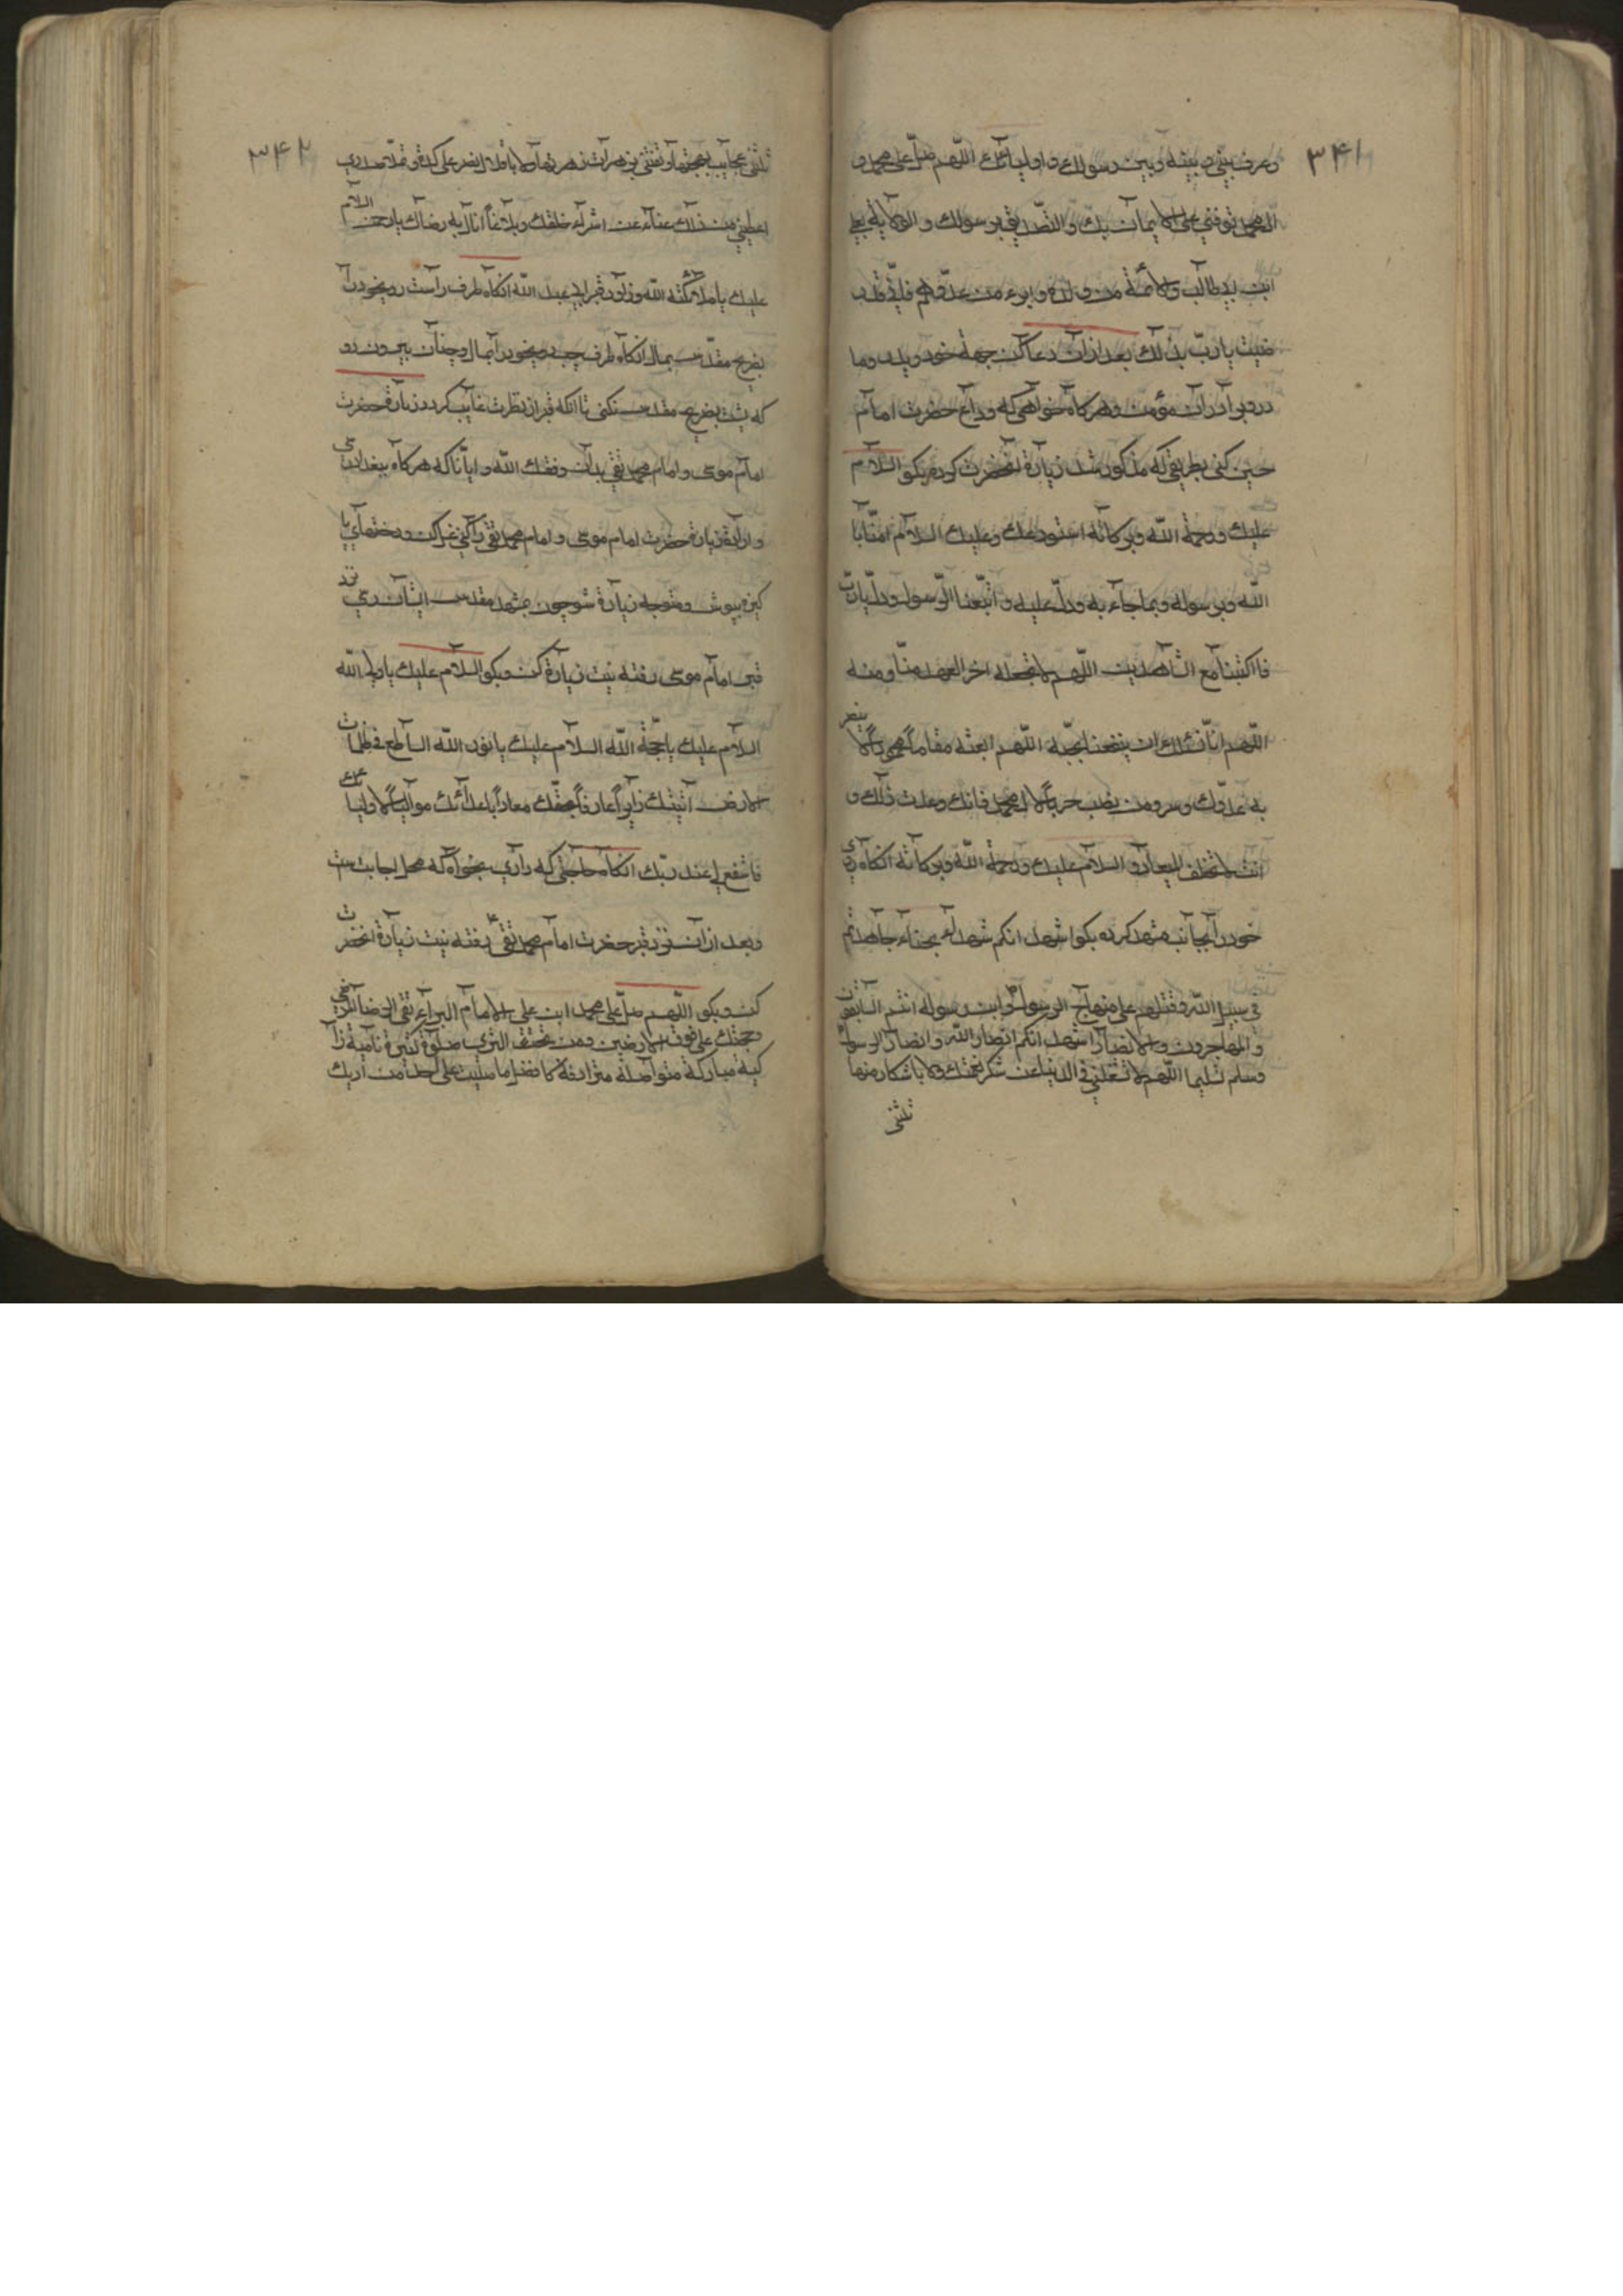 ۳۴۱
وعرف بینی و بینه وبین رسولك و اولیائك اللّهم صلّ علی محمد و
ال محمد توفنی علی الایمان بك و التّصدیق برسولك و الولایة بعلی
ابن ابی طالب والائمة من ولده و ابرء من عدوّهم فانّی قد ر
ضیت یا ربّ بذلك بعد از ان دعا کن جهة خود و پدر و ما
در و برادران مؤمن و هر کاه خواهی که وداع حضرت امام
حسین کنی بطریقی که مذکور شد زیارة انحضرت کرده بکو السّلام
علیك ورحمة اللّه وبرکاته استودعك وعلیك السلام امنّا با
اللّه وبرسوله وبما جاء به ودلّ علیه واتّبعنا الرّسول ودلّ یاربّ
فااکتبنا مع الشاهدین اللّهم لا تجعله اخر العهد منّا ومنه
اللّهم انا نسئلك ان ینفعنا بحبّه اللّهم ابعثه مقاماً محموداً لا ینصر
به عدوّك و من ینصب حرباً لال محمد فانك وعدت ذلك و
انت لا تخلف المیعاد و السلام علیك ورحمة اللّه وبرکاته انکاه روی
خود را بجانب شهدا کرده بکو اشهد انکم شهداء نجباء جاهدتم
فی سبیل اللّه وقتلتم علی منهاج الرسول وابن رسوله انتم السابقون
والمهاجرون والانصار اشهد انکم انصار اللّه وانصار الرسول
وسلم تسلیما اللّهم لا تشغلنی فی الدنیا عن شکر نعمتك ولا باکثار منها
تلهنی
۳۴۲
تلهنی عجایب بهجتها وتفتننی زهرات زهرتها ولا باقلال یضر علی کده و تملاء صدری
اعطنی من ذلك غناء عن اشرار خلقك وبلاغاً انال به رضاك یا رحمن السلام
علیك یا ملائکة اللّه وزوار قبر ابی عبد اللّه انکاه طرف راست روی خود را
بضریح مقدس بمال انکاه طرف چپ روی خود را بمال وچنان بیرون رو
که پشت بضریح مقدس نکنی تا انکه قبر از نظرت غایب کردد زیارة حضرت
امام موسی و امام محمد تقی بدان وفقك اللّه وایانا که هرکاه ببغداد رسی
و اراده زیارة حضرت امام موسی و امام محمد تقی را کنی غسل کن و رختهای پا
کیزه بپوش و متوجه زیارة شو چون بمشهد مقدس ایشان رسی نزد
قبر امام موسی رفته نیت زیارة کن و بکو السلام علیك یا ولی اللّه
السلام علیك یا حجّة اللّه السلام علیك یا نور اللّه الساطع فی ظلمات
الارض اتیتك زایراً عارفاً بحقّك معادیاً باعدائك موالیاً لاولیائك
فاشفع لی عند ربّك انکاه حاجتی که داری بخواه که محل اجابت است
وبعد از ان نزد قبر حضرت امام محمد تقی رفته نیت زیارة انحضرت
کن و بکو اللّهم صلّ علی محمد ابن علی الامام البرّ التقی الرضا المرضی
وحجتك علی فوق الارضین ومن تحت الثری صلوة کثیرة نامیة زا
کیة مبارکة متواصلة مترادفة کافضل ما صلیت علی احد من اولیائك